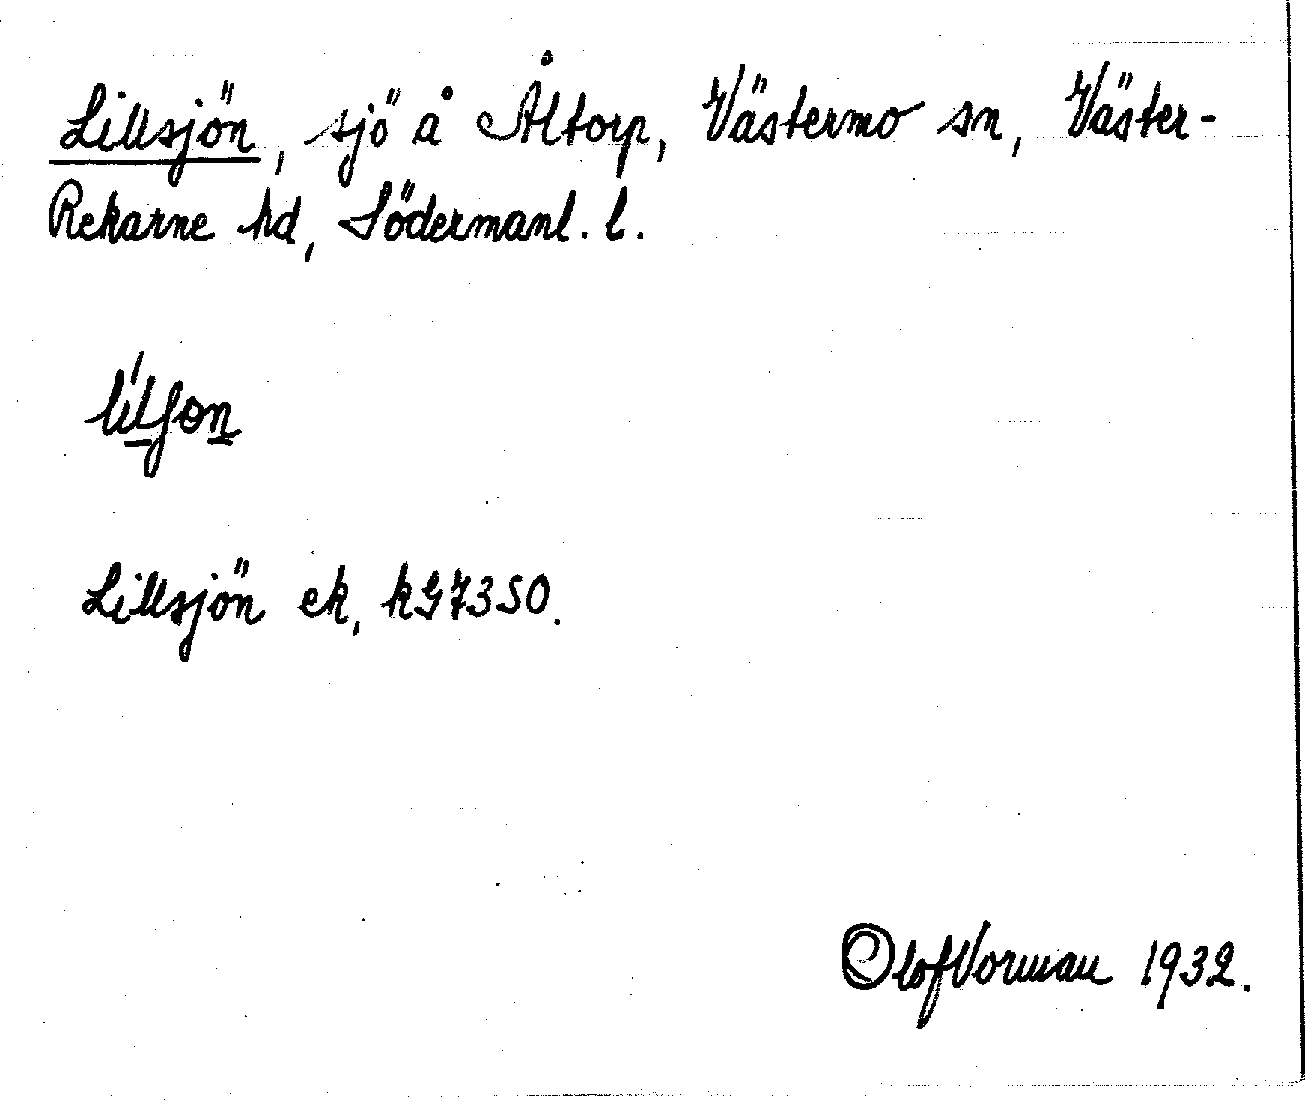 Lillsjön, sjö å Åltorp, Västermo sn, Väster-
Rekarne hd, Södermanl. l.
Lillsjön ek, kG7350.
Olof Vorman 1932.